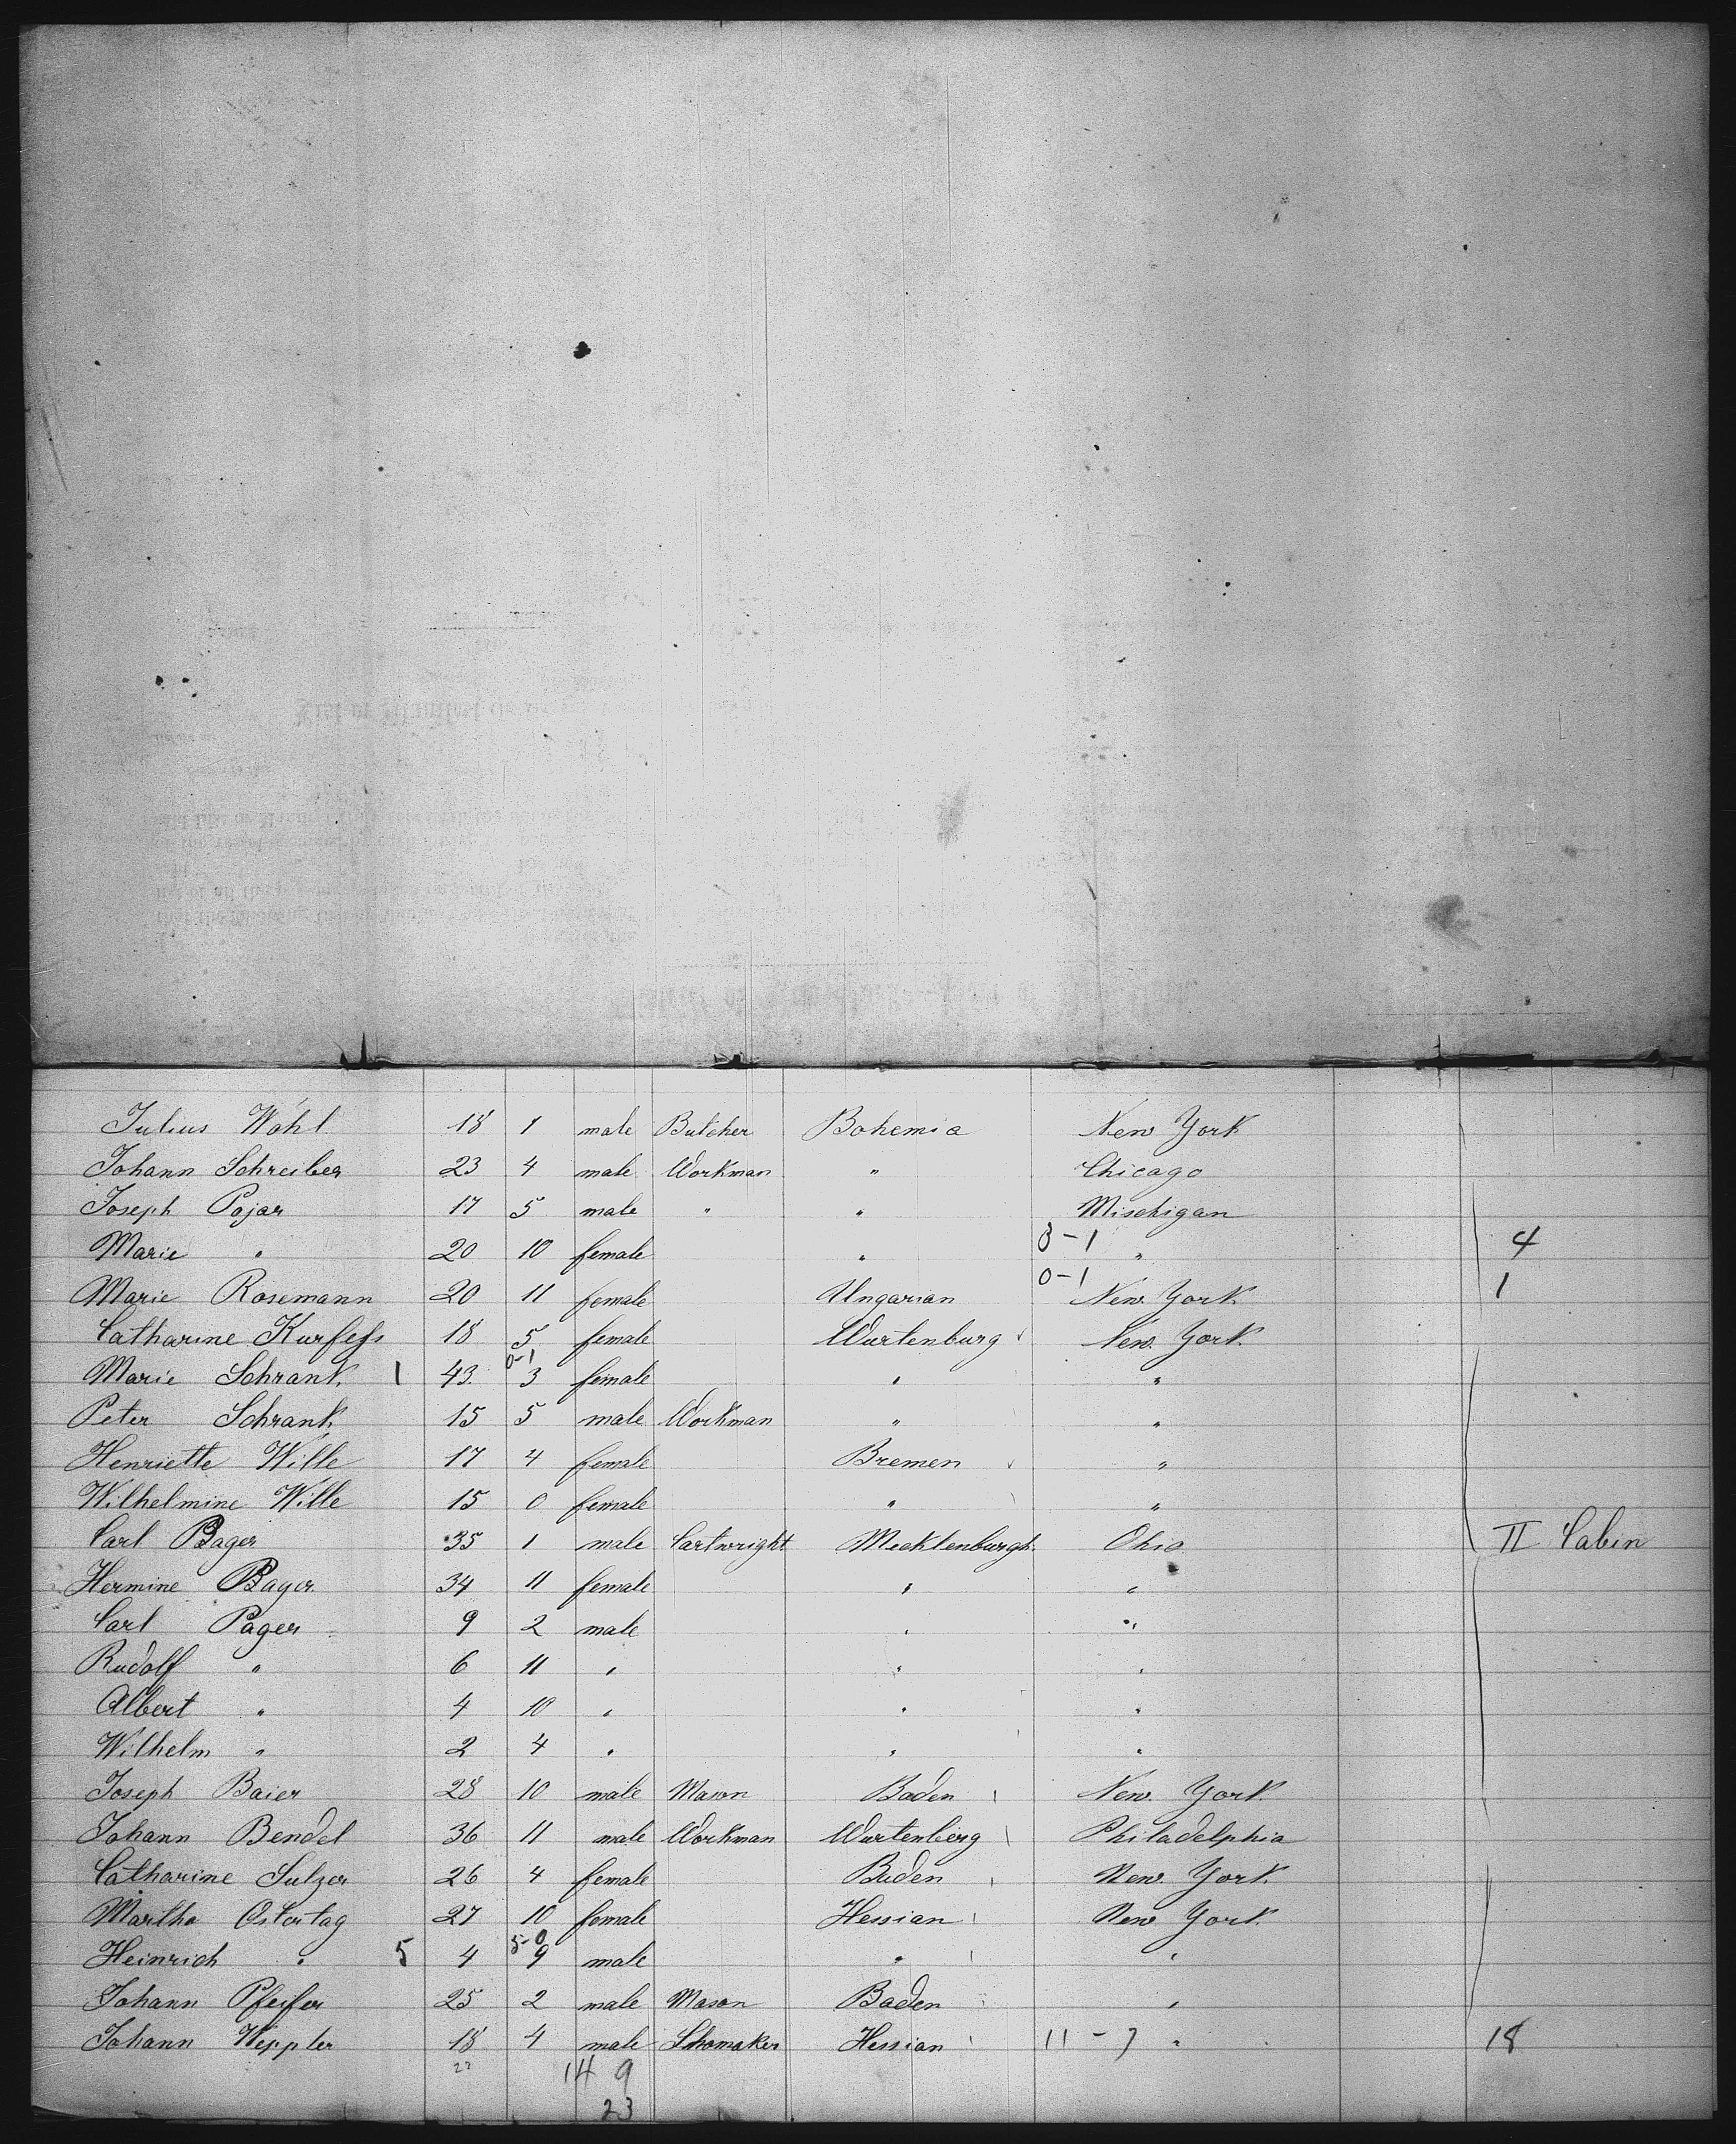 Julius Wohl 18 1 male Butcher Bohemia New York
Johann Schreiber 23 4 male Workman " Chicago
Joseph Pojar 17 5 male " " Mischigan
Marie " 20 10 female " 3-1 " 4
Marie Rosemann 20 11 female Ungarian 0-1 New York 1
Catharine Kurfess 18 5 female Wurtenburg New York
Marie Schrank 1 43 0-1 3 female " "
Peter Schrank 15 5 male Workman " "
Henriette Wille 17 4 female Bremen "
Wilhelmine Wille 15 0 female " "
Carl Bager 35 1 male Cartwright Mecklenburgh Ohio II Cabin
Hermine Bager 34 11 female " "
Carl Pager 9 2 male " "
Rudolf " 6 11 " " "
Albert " 4 10 " " "
Wilhelm " 2 4 " " "
Joseph Baier 28 10 male Mason Baden New York
Johann Bendel 36 11 male Workman Wurtenberg Philadelphia
Catharine Sulzer 26 4 female Baden New York
Martha Ostertag 27 10 female Hessian New York
Heinrich " 5 4 5-0 9 male " "
Johann Pfeifer 25 2 male Mason Baden "
Johann Heppler 18 4 male Schomaker Hessian 11-7 " 18
14 9
23